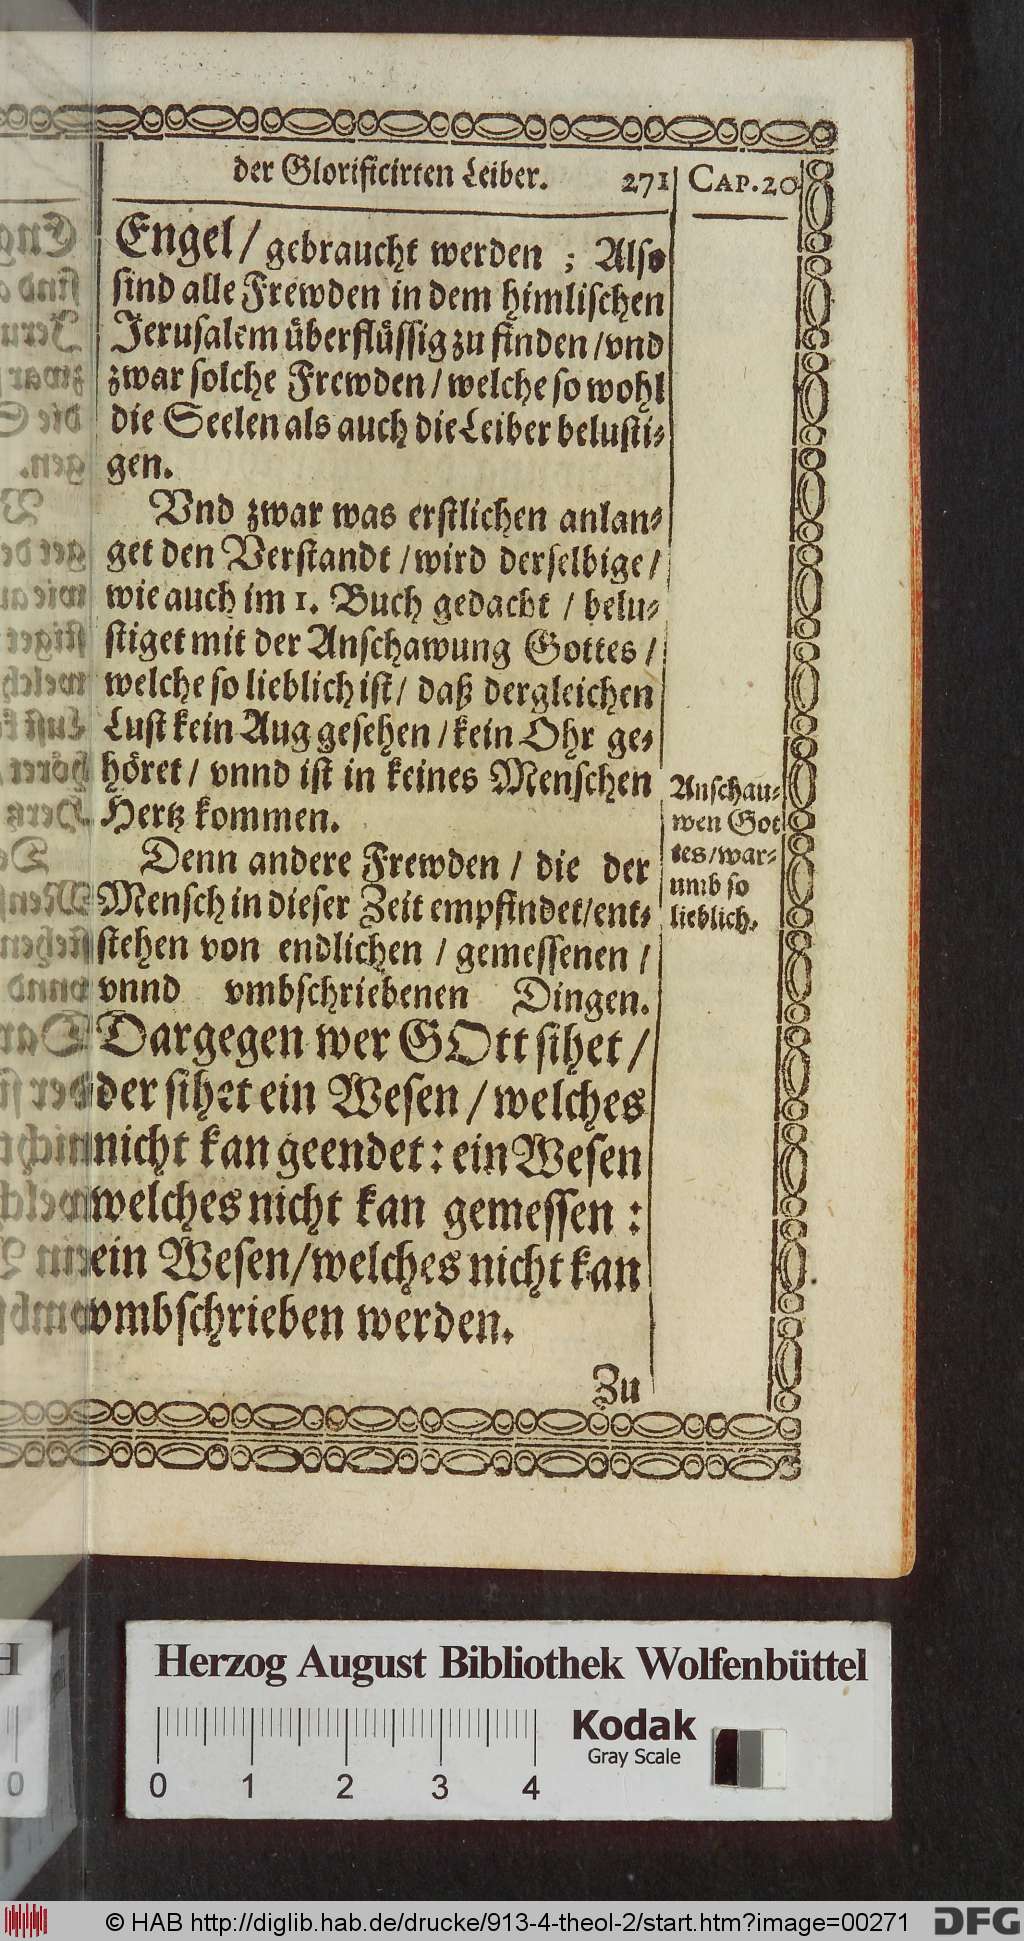 der Glorificirten Leiber. 271 CAP. 20
Engel / gebraucht werden ; Also
sind alle Frewden in dem himlischen
Jerusalem überflüssig zu finden / vnd
zwar solche Frewden / welche so wohl
die Seelen als auch die Leiber belusti-
gen.
Vnd zwar was erstlichen anlan-
get den Verstandt / wird derselbige /
wie auch im 1. Buch gedacht / belu-
stiget mit der Anschawung Gottes /
welche so lieblich ist / daß dergleichen
Lust kein Aug gesehen / kein Ohr ge-
höret / vnnd ist in keines Menschen
Hertz kommen.
Denn andere Frewden / die der
Mensch in dieser Zeit empfindet / ent-
stehen von endlichen / gemessenen /
vnnd vmbschriebenen Dingen.
Dargegen wer GOtt sihet /
der sihet ein Wesen / welches
nicht kan geendet : ein Wesen
welches nicht kan gemessen :
ein Wesen / welches nicht kan
vmbschrieben werden.
Zu
Anschau-
wen Got
tes / war-
umb so
lieblich.
Herzog August Bibliothek Wolfenbüttel
0 1 2 3 4
Kodak
Gray Scale
0
© HAB http://diglib.hab.de/drucke/913-4-theol-2/start.htm?image=00271
DFG